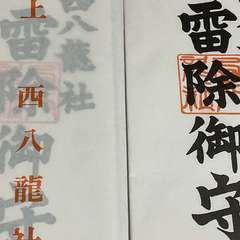 雷除御守
上西八龍社
西八龍社
雷除御守